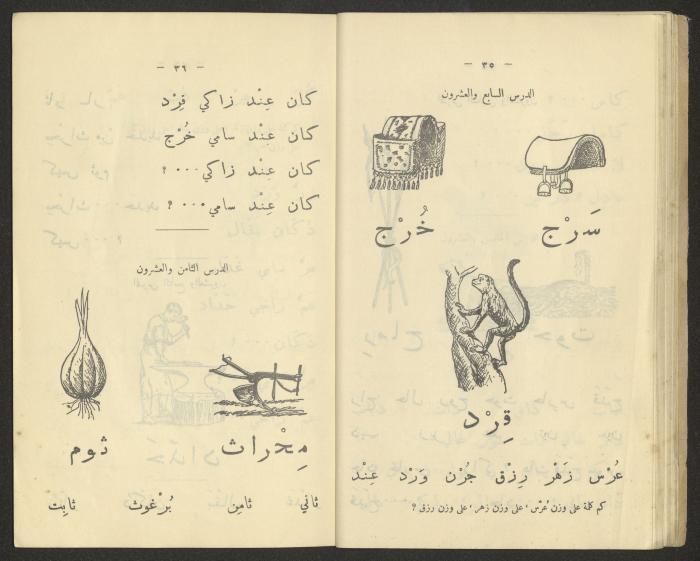 - ٣٥ -
الدرس السابع والعشرون
سَرْج خُرْج
قِرْد
عُرْس زَهْر رِزْق جُرْن وَرْد عِنْد
كم كلمة على وزن عُرْس ، على وزن زهر ، على وزن رزق ؟
- ٣٦ -
كان عِنْد زاكي قِرْد
كان عِنْد سامي خُرْج
كان عِنْد زاكي ... ؟
كان عِنْد سامي ... ؟
الدرس الثامن والعشرون
مِحْراث ثوم
ثاني ثامِن بُرْغوث ثابِت